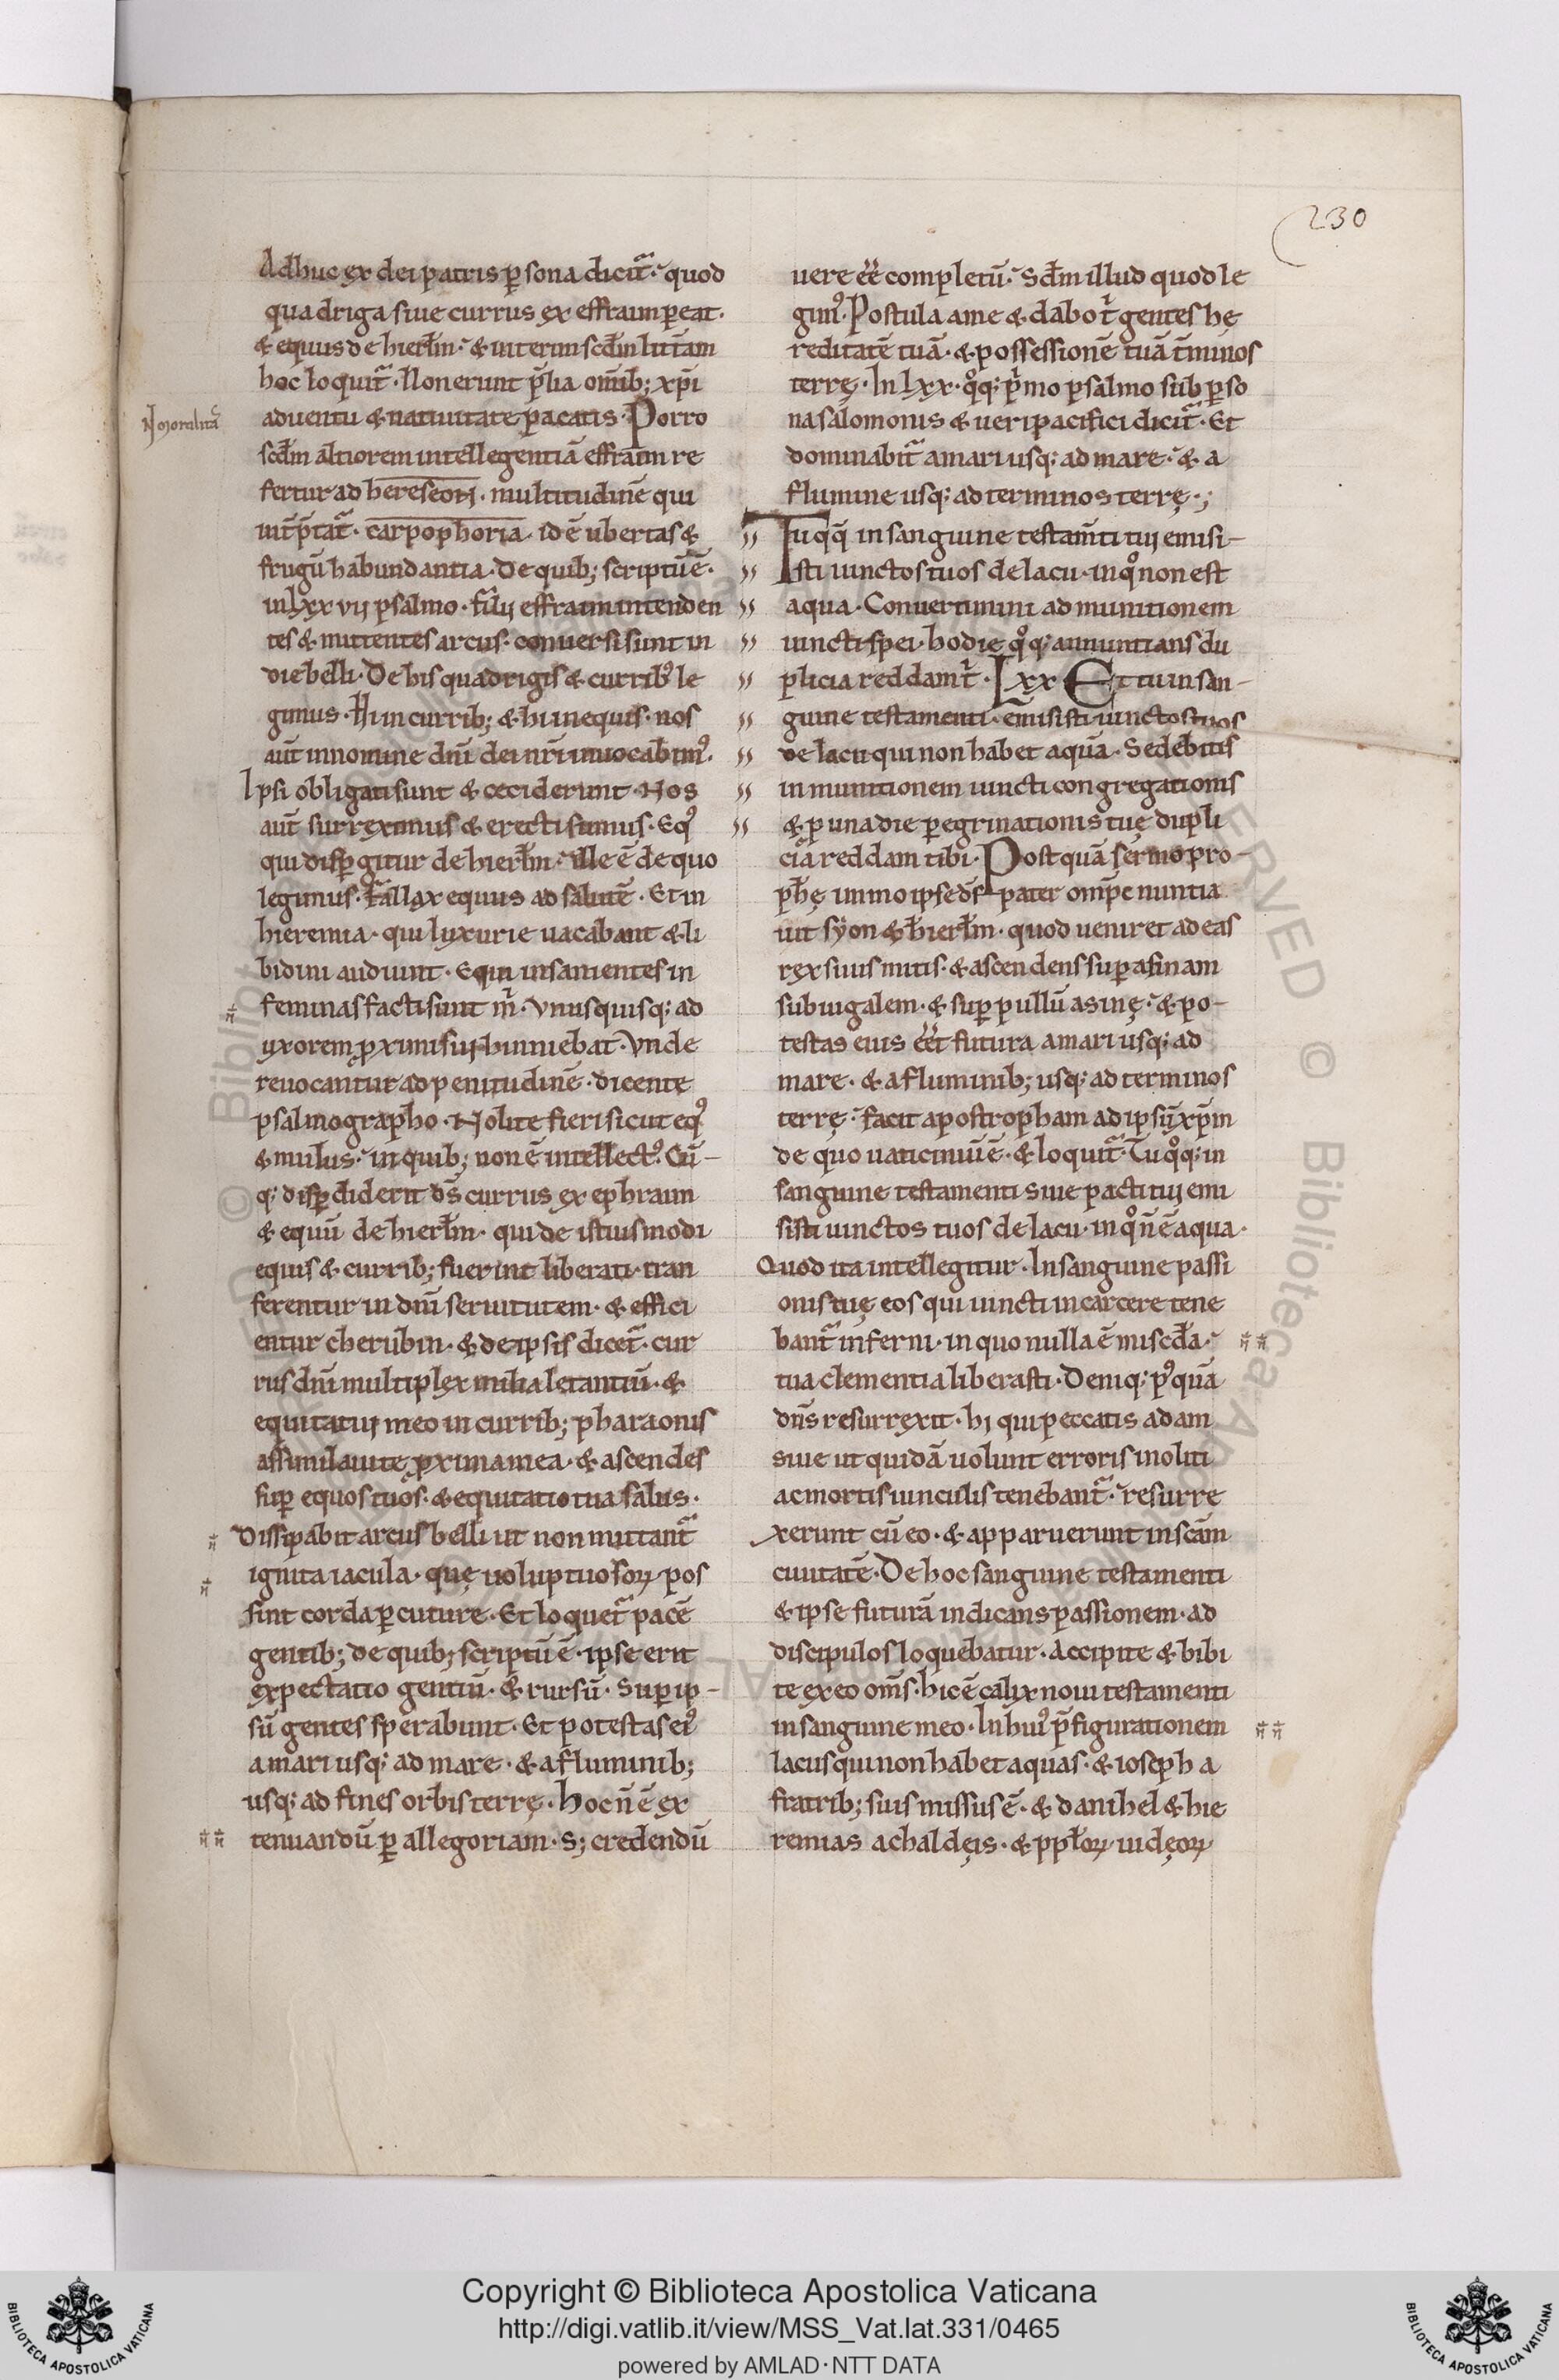 230
Adhuc ex dei patris p̄sona dicit᷑. quod
quadriga siue currus ex effraim p̄eat.
& equus de hierłm. & interim scd̄m litt̄am
hoc loquit᷑. Non erunt p̄lia om̄ib; xp̄i
aduentu & natiuitate pacatis. Porro
scd̄m altiorem intellegentiā effraim re
fertur ad hereseoꝝ. multitudinē qui
int̄p̄tat᷑. carpophoria. id ē ubertas &
frugū habundantia. De quib; scriptū ē.
in lxxvij psalmo. filij effraim intenden
tes & mittentes arcus. conuersi sunt in
die belli. De his quadrigis & curribꝰ le
gimus. Hi in currib; & hi in equis. nos
aūt in nomine dn̄i dei nr̄i inuocabimꝰ.
Ipsi obligati sunt & ceciderunt. Nos
aūt surreximus & erecti sumus. Eqꝰ
qui disp̄gitur de hierłm. ille ē de quo
legimus. Fallax equus ad salutē. Et in
hieremia. qui luxurie uacabant & li
bidini audiunt. Equi insanientes in
feminas facti sunt m̄. Vnusquisq; ad
uxorem ꝓximi sui hinniebat. Vnde
reuocantur ad penitudinē. dicente
psalmographo. Nolite fieri sicut eqꝰ
& mulus. in quib; non ē intellectꝰ. Cū-
q; disp̄diderit dś currus ex ephraim
& equū de hierłm. qui de istiusmodi
equis & currib; fuerint liberati. tran
ferentur in dn̄i seruitutem. & effici
entur cherubin. & de ipsis dicet᷑. cur
rus dn̄i multiplex milia letantiū. &
equitatui meo in currib; pharaonis
assimilaui te ꝓxima mea. & ascendes
sup̄ equos tuos. & equitatio tua salus.
Dissipabit arcus belli ut non mittant᷑
ignita iacula. quę uoluptuosoꝝ pos
sint corda p̄cutere. Et loquet᷑ pacē
gentib; de quib; scriptū ē. ipse erit
expectatio gentiū. & rursū. Sup̄ ip-
sū gentes sperabunt. Et potestas eiꝰ
a mari usq; ad mare. & a fluminib;
usq; ad fines orbis terrę. Hoc n̄ ē ex
tenuandū p̄ allegoriam. S; credendū
uere eē completū. Scd̄m illud quod le
gimꝰ. Postula a me & dabo t̄ gentes hę
reditatē tuā. & possessionē tuā t̄minos
terrę. In lxx. qͦq; p̄mo psalmo sub p̄so
na salomonis & ueri pacifici dicit᷑. Et
dominabit᷑ a mari usq; ad mare. & a
flumine usq; ad terminos terrę.;
Tu qq̄ in sanguine testam̄ti tui emisi-
sti uinctos tuos de lacu. in qͦ non est
aqua. Conuertimini ad munitionem
uincti spei. hodie qͦq; annuntians du
plicia reddam t̄. Lxx Et tu in san-
guine testamenti. emisisti uinctos tuos
de lacu qui non habet aquā. Sedebitis
in munitionem uincti congregationis
& p̄ una die p̄egrinationis tuę dupli
cia reddam tibi. Postquā sermo pro-
ph̄ę immo ipse dś pater omp̄c nuntia
uit syon & hierłm. quod ueniret ad eas
rex suus mitis. & ascendens sup̄ asinam
subiugalem. & sup̄ pullū asinę. & po-
testas eius eēt futura a mari usq; ad
mare. & a fluminib; usq; ad terminos
terrę. facit apostropham ad ipsū xp̄m
de quo uaticiniū ē. & loquit᷑. Tu qͦq; in
sanguine testamenti siue pacti tui emi
sisti uinctos tuos de lacu. in qͦ n̄ ē aqua.
Quod ita intellegitur. In sanguine passi
onis tuę eos qui uincti in carcere tene
bant᷑ inferni. in quo nulla ē miscd̄a.
tua clementia liberasti. Deniq; pꝰquā
dn̄s resurrexit. hi qui peccatis adam
siue ut quidā uolunt erroris inoliti
ac mortis uinculis tenebant᷑. resurre
xerunt cū eo. & apparuerunt in scām
ciuitatē. De hoc sanguine testamenti
& ipse futurā indicans passionem. ad
discipulos loquebatur. Accipite & bibi
te ex eo om̄s. hic ē calix noui testamenti
in sanguine meo. In huiꝰ p̄figurationem
lacus qui non habet aquas. & ioseph a
fratrib; suis missus ē. & danihel & hie
remias a chaldęis. & ppłoꝝ iudęoꝝ
Copyright © Biblioteca Apostolica Vaticana
http://digi.vatlib.it/view/MSS_Vat.lat.331/0465
powered by AMLAD · NTT DATA
BIBLIOTECA APOSTOLICA VATICANA
BIBLIOTECA APOSTOLICA VATICANA